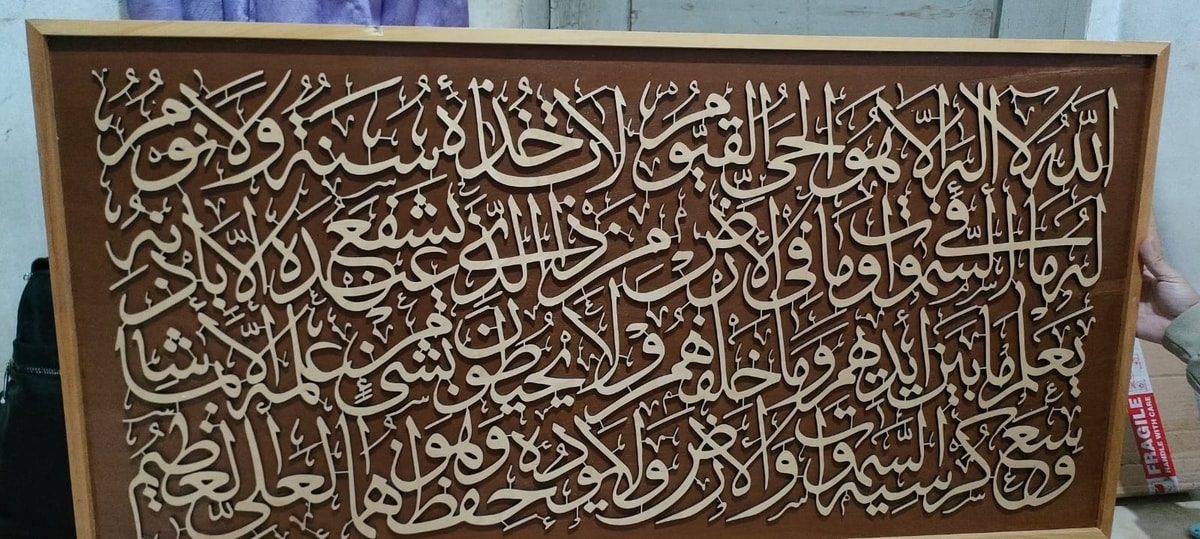 الله لا إله إلا هو الحي القيوم لا تأخذه سنة ولا نوم
له ما في السموات وما في الأرض من ذا الذي يشفع عنده إلا بإذنه
يعلم ما بين أيديهم وما خلفهم ولا يحيطون بشيء من علمه إلا بما شاء
وسع كرسيه السموات والأرض ولا يؤده حفظهما وهو العلي العظيم
FRAGILE
HANDLE WITH CARE